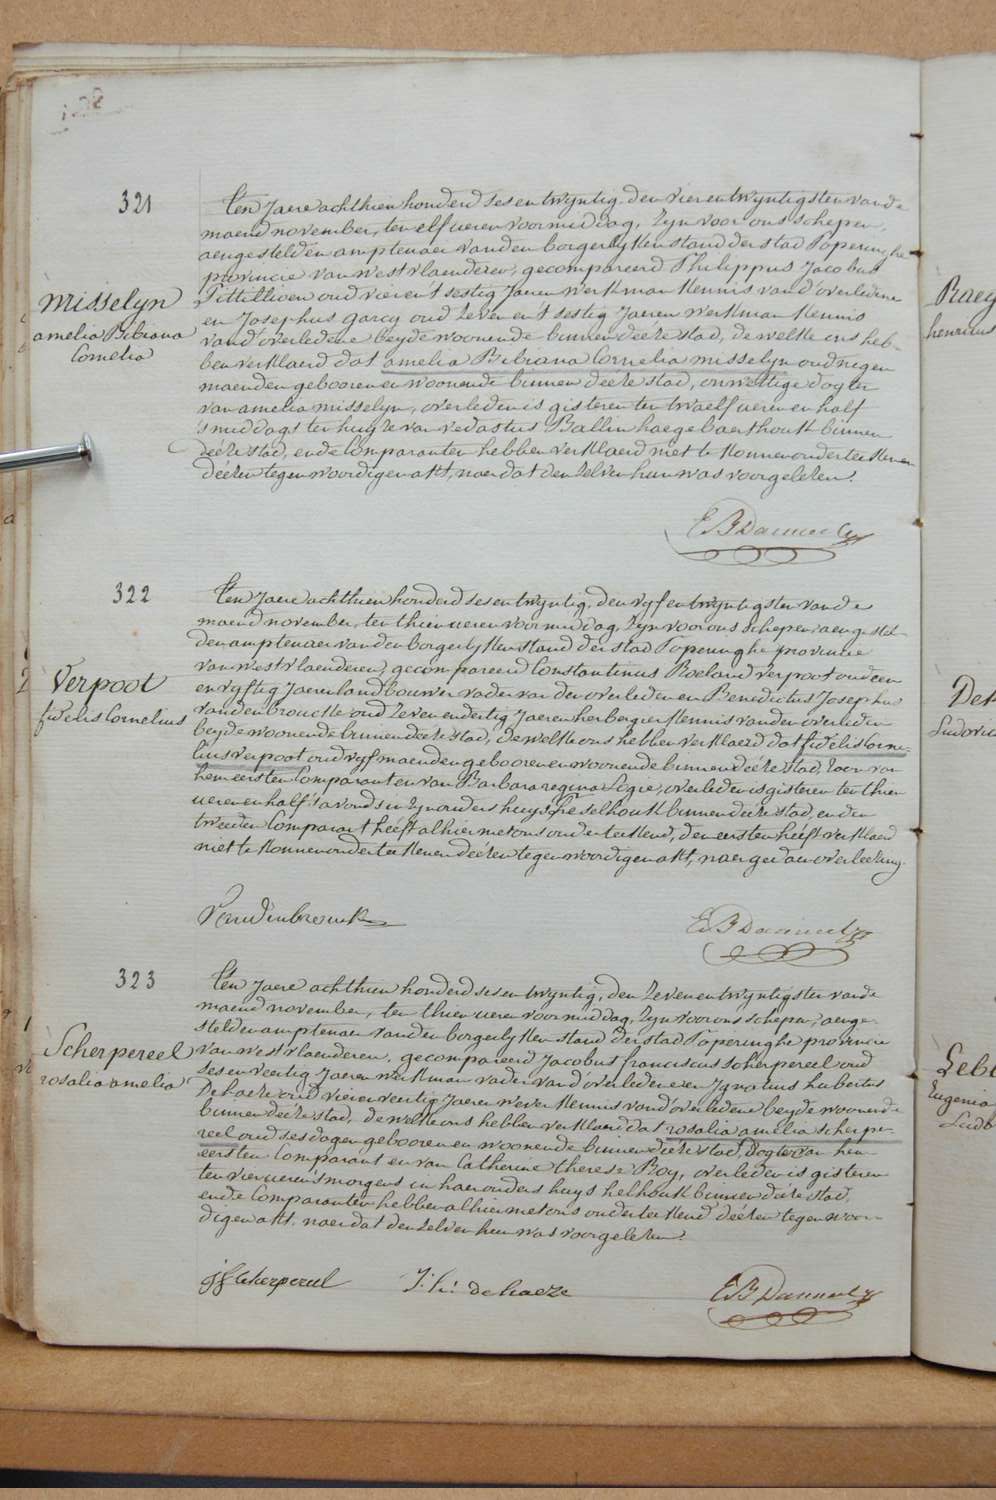 321
Misselyn
amelia Bibiana
Cornelia
Ten Jaere achthien honderd sesentwyntig, den vierentwyntigsten van de
maend november, ten elf ueren voormiddag, Zyn voor ons schepen,
aengestelden amptenaer van den borgerlyken stand der stad Poperinghe
provincie van westvlaenderen, gecompareerd Philippus Jacobus
oud vier en't sestig Jaeren werkman Kennis van d'overledene
en Josephus garcy oud Zeven en't sestig Jaeren werkman Kennis
vand'overledene beyde woonende binnen deéze stad, de welke ons heb-
ben verklaerd dat amelia Bibiana Cornelia misselyn oud negen
maenden gebooren en woonende binnen deéze stad, onwettige dogter
van amelia misselyn, overleden is gisteren ten twaelf ueren en half
smiddags ten huyze van vedastus Ballin haegebaerthoek binnen
deéze stad, ende Comparanten hebben verklaerd niet te konnen onderteekenen
deézen tegenwoordigen akt, naer dat den zelven hun was voorgelezen.
322
Verpoot
fidelis Cornelius
Ten Jaere achthien honderd sesentwyntig, den vyfentwyntigsten van de
maend november, ten thien ueren voormiddag, Zyn voor ons schepen, aengestel-
den amptenaer van den borgerlyken stand der stad Poperinghe provincie
van westvlaenderen, gecompareerd Constantinus Roeland verpoot oud een
en vyftig Jaeren landbouwer vader van den overleden en Benedictus Josephus
vandenbroucke oud Zeven en dertig Jaeren herbergier Kennis van den overleden
beyde woonende binnen deéze stad, de welke ons hebben verklaerd dat fidelis Corne-
lius verpoot oud vyf maenden gebooren en woonende binnen deéze stad, Zoon van
hem eersten Comparant en van Barbara regina overleden is gisteren ten thien
ueren en half s'avonds in Zyn ouders huys heselhoek binnen deéze stad, en den
tweeden Comparant heéft alhier met ons onderteekend, den eersten heéft verklaerd
niet te konnen onderteekenen deézen tegenwoordigen akt, naer gedaen overleézing.
Vandenbroucke
323
Scherpereel
rosalia amelia
Ten Jaere achthien honderd sesentwyntig, den Zevenentwyntigsten van de
maend november, ten thien ueren voormiddag, Zyn voor ons schepen, aenge-
stelden amptenaer van den borgerlyken stand der stad Poperinghe provincie
van westvlaenderen, gecompareerd Jacobus franciscus scherpereel oud
ses en veertig Jaeren werkman vader van d'overledene en Ignatius hubertus
Dehaeze oud vier en veertig Jaeren wever Kennis vand'overledene beyde woonende
binnen deéze stad, de welke ons hebben verklaerd dat rosalia amelia scherpe-
reel oud ses dagen gebooren en woonende binnen deéze stad, Dogter van hem
eersten Comparant en van Catherine therese Roy, overleden is gisteren
ten vier ueren smorgens in haer ouders huys helhoek binnen deéze stad,
ende Comparanten hebben alhier met ons onderteekend deézen tegenwoor-
digen akt, naer dat den zelven hun was voorgelezen.
jfscherpereel
J: h: dehaeze
Raey
henricus
Ludovic
Eugenia